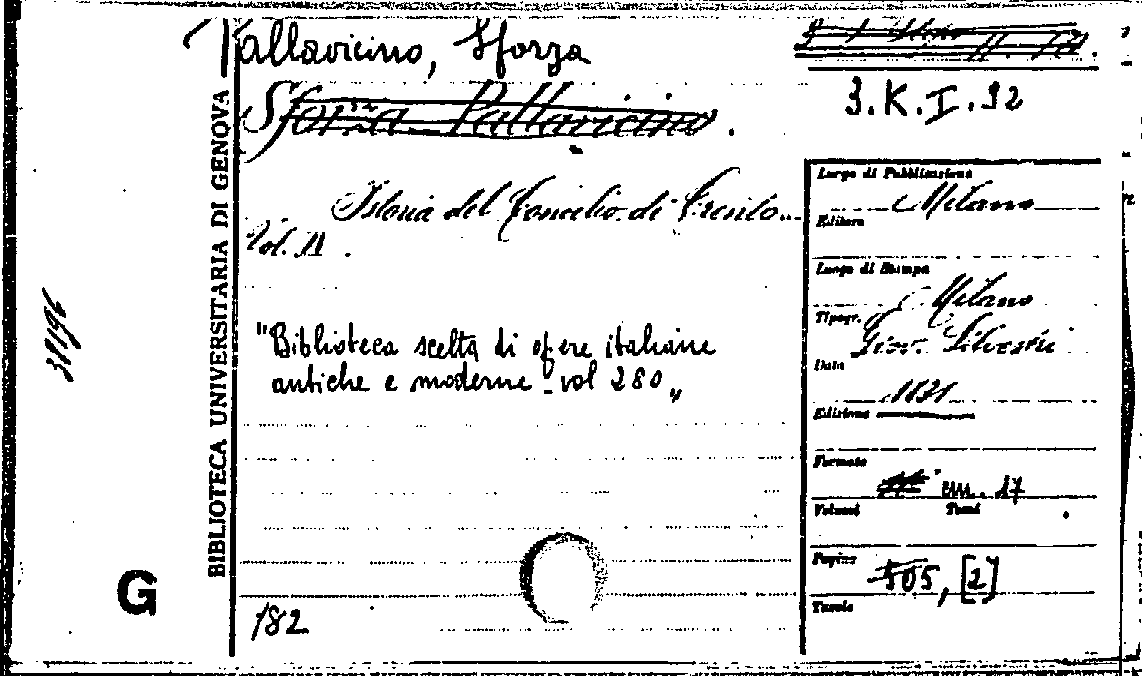 Pallavicino, Sforza
Sforza Pallavicino.
3.K.I.92
Istoria del Concilio di Trento...
Vol. II.
"Biblioteca scelta di opere italiane
antiche e moderne - vol 280„
182
BIBLIOTECA UNIVERSITARIA DI GENOVA
G
Luogo di Pubblicazione
Milano
Editore
Luogo di Stampa
Milano
Tipogr. Giov. Silvestri
Data
Edizione
Formato
cm. 17
Volumi Tomi
Pagine 505, [2]
Tavole